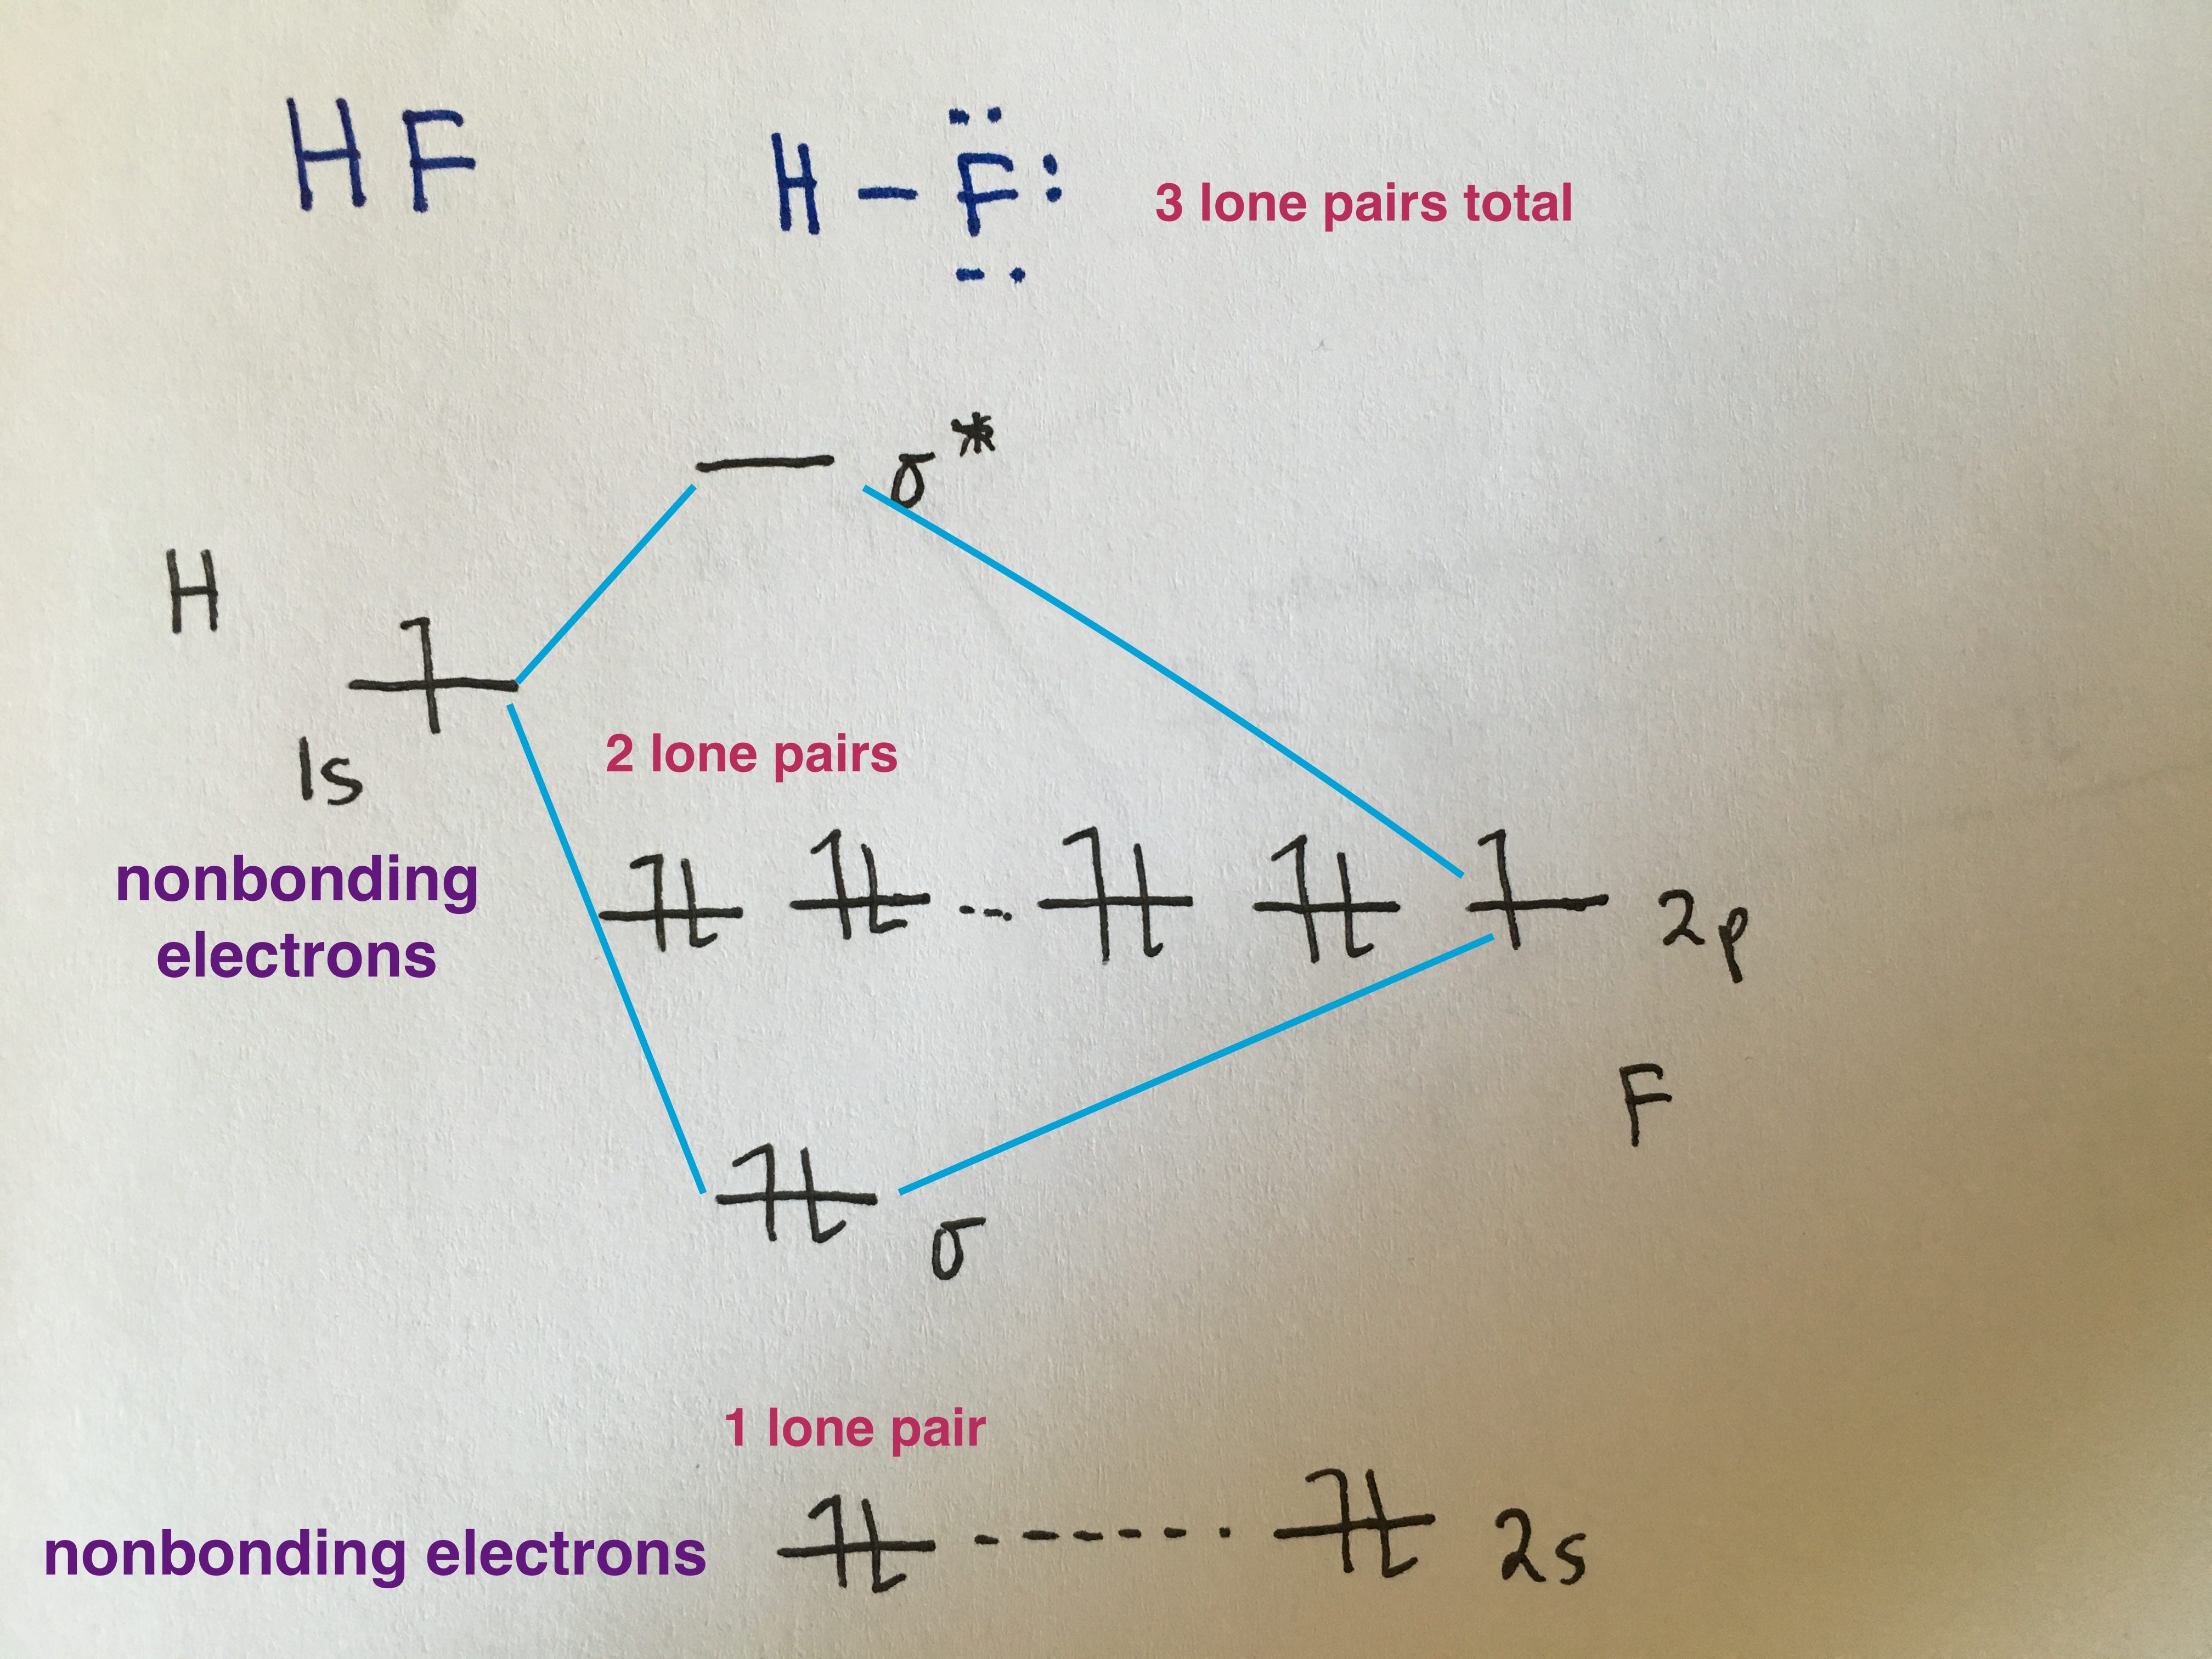 HF
H – F:
3 lone pairs total
σ*
H
1s
2 lone pairs
nonbonding
electrons
2p
F
σ
1 lone pair
nonbonding electrons
2s